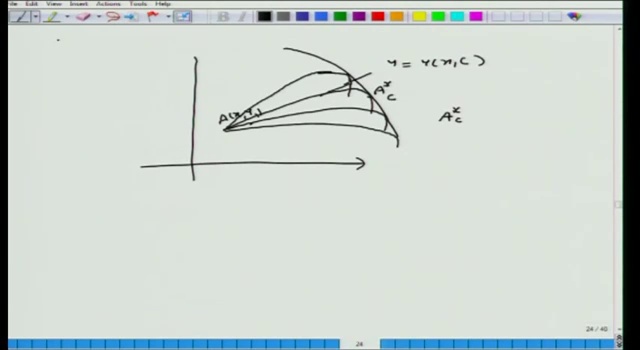 File Edit View Insert Actions Tools Help
y = y(x, c)
A*c
A*c
24 / 40
24